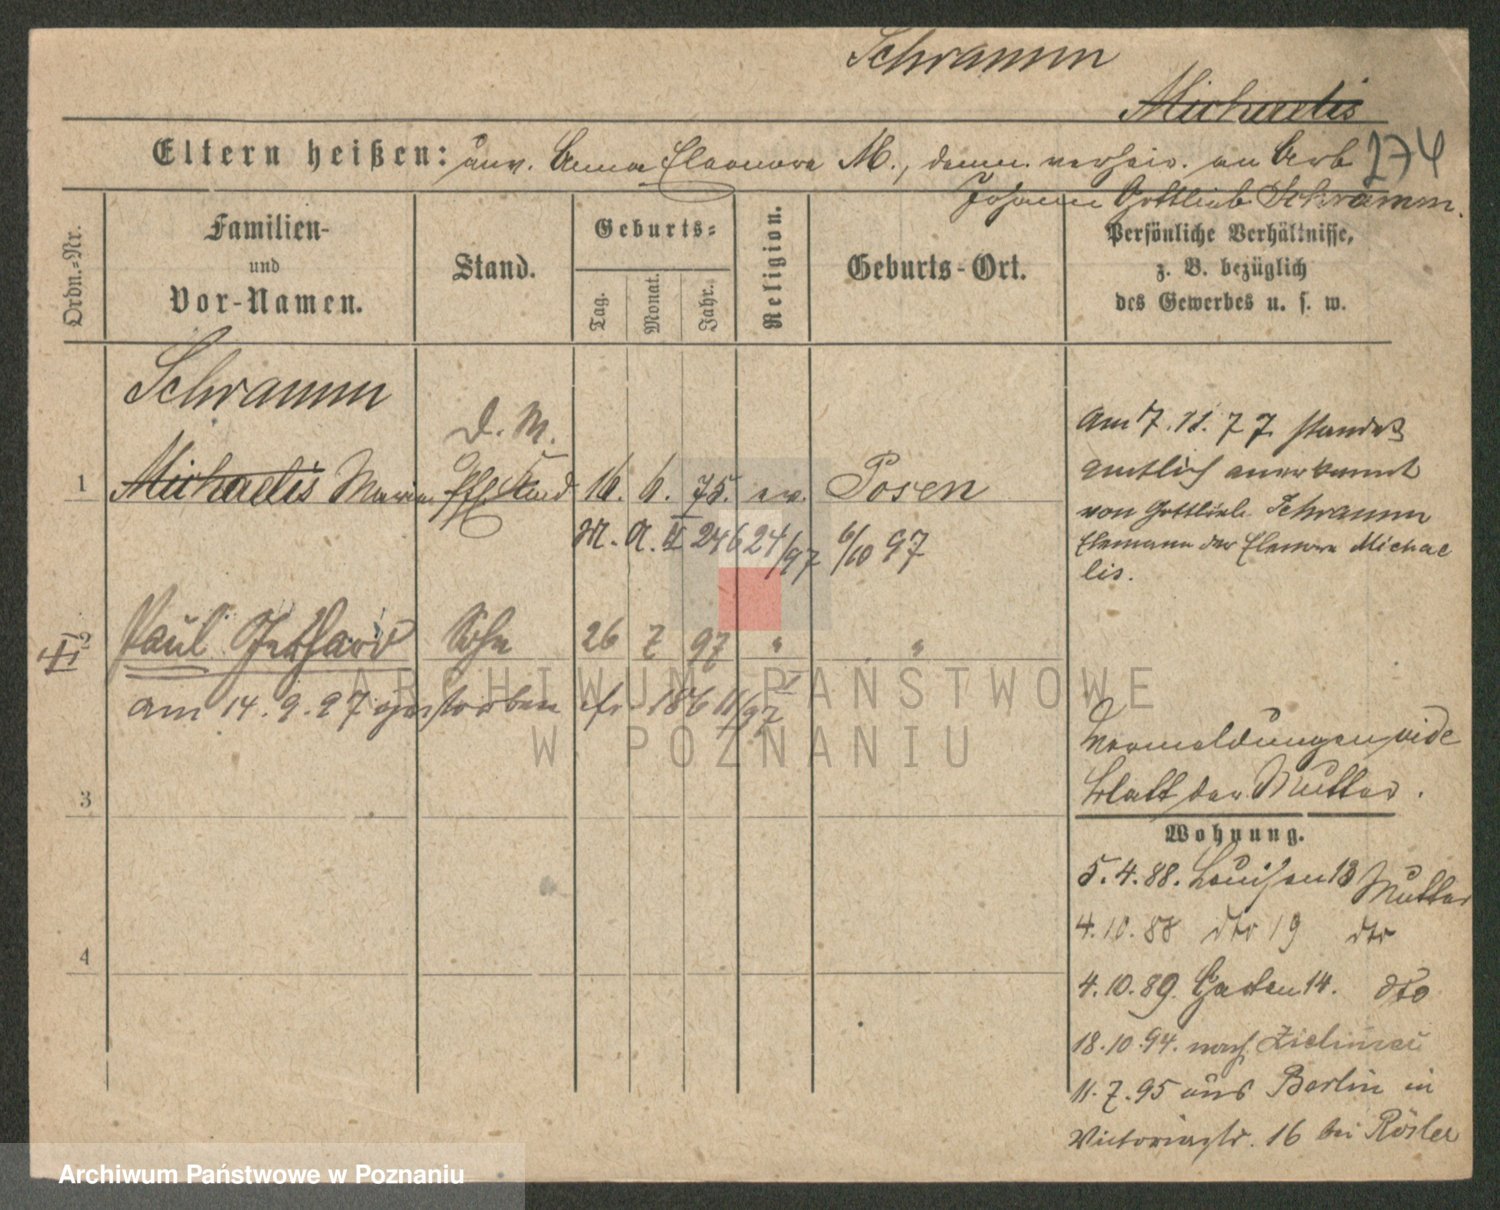 Schramm
Michaelis
274
Eltern heißen: unv. Anna Eleonore M., dann. verheir. an Arb.
Johann Gottlieb Schramm.
Ordn.-Nr.
Familien-
und
Vor-Namen.
Stand.
Geburts-
Tag.
Monat.
Jahr.
Religion.
Geburts-Ort.
Persönliche Verhältnisse,
z. B. bezüglich
des Gewerbes u. s. w.
Schramm
D. M.
1 Michaelis Maria 16. 6. 75. ev. Posen
M. A. II 246 24/97 6/10 97
Am 7.11.77 standes
amtlich anerkannt
von Gottlieb Schramm
Ehemann der Eleonore Michae
lis.
2 Paul Sohn 26 7 97 " "
am 14.9.97 gestorben 186 11/97
Anmeldungen vide
Blatt der Mutter.
3
Wohnung.
5.4.88. Louisen 13 Mutter
4.10.88 dto 19 dto
4
4.10.89. Garten 14. dto
18.10.94. nach
11.7.95 aus Berlin in
Victoriastr. 16 bei Rösler
ARCHIWUM PAŃSTWOWE
W POZNANIU
Archiwum Państwowe w Poznaniu